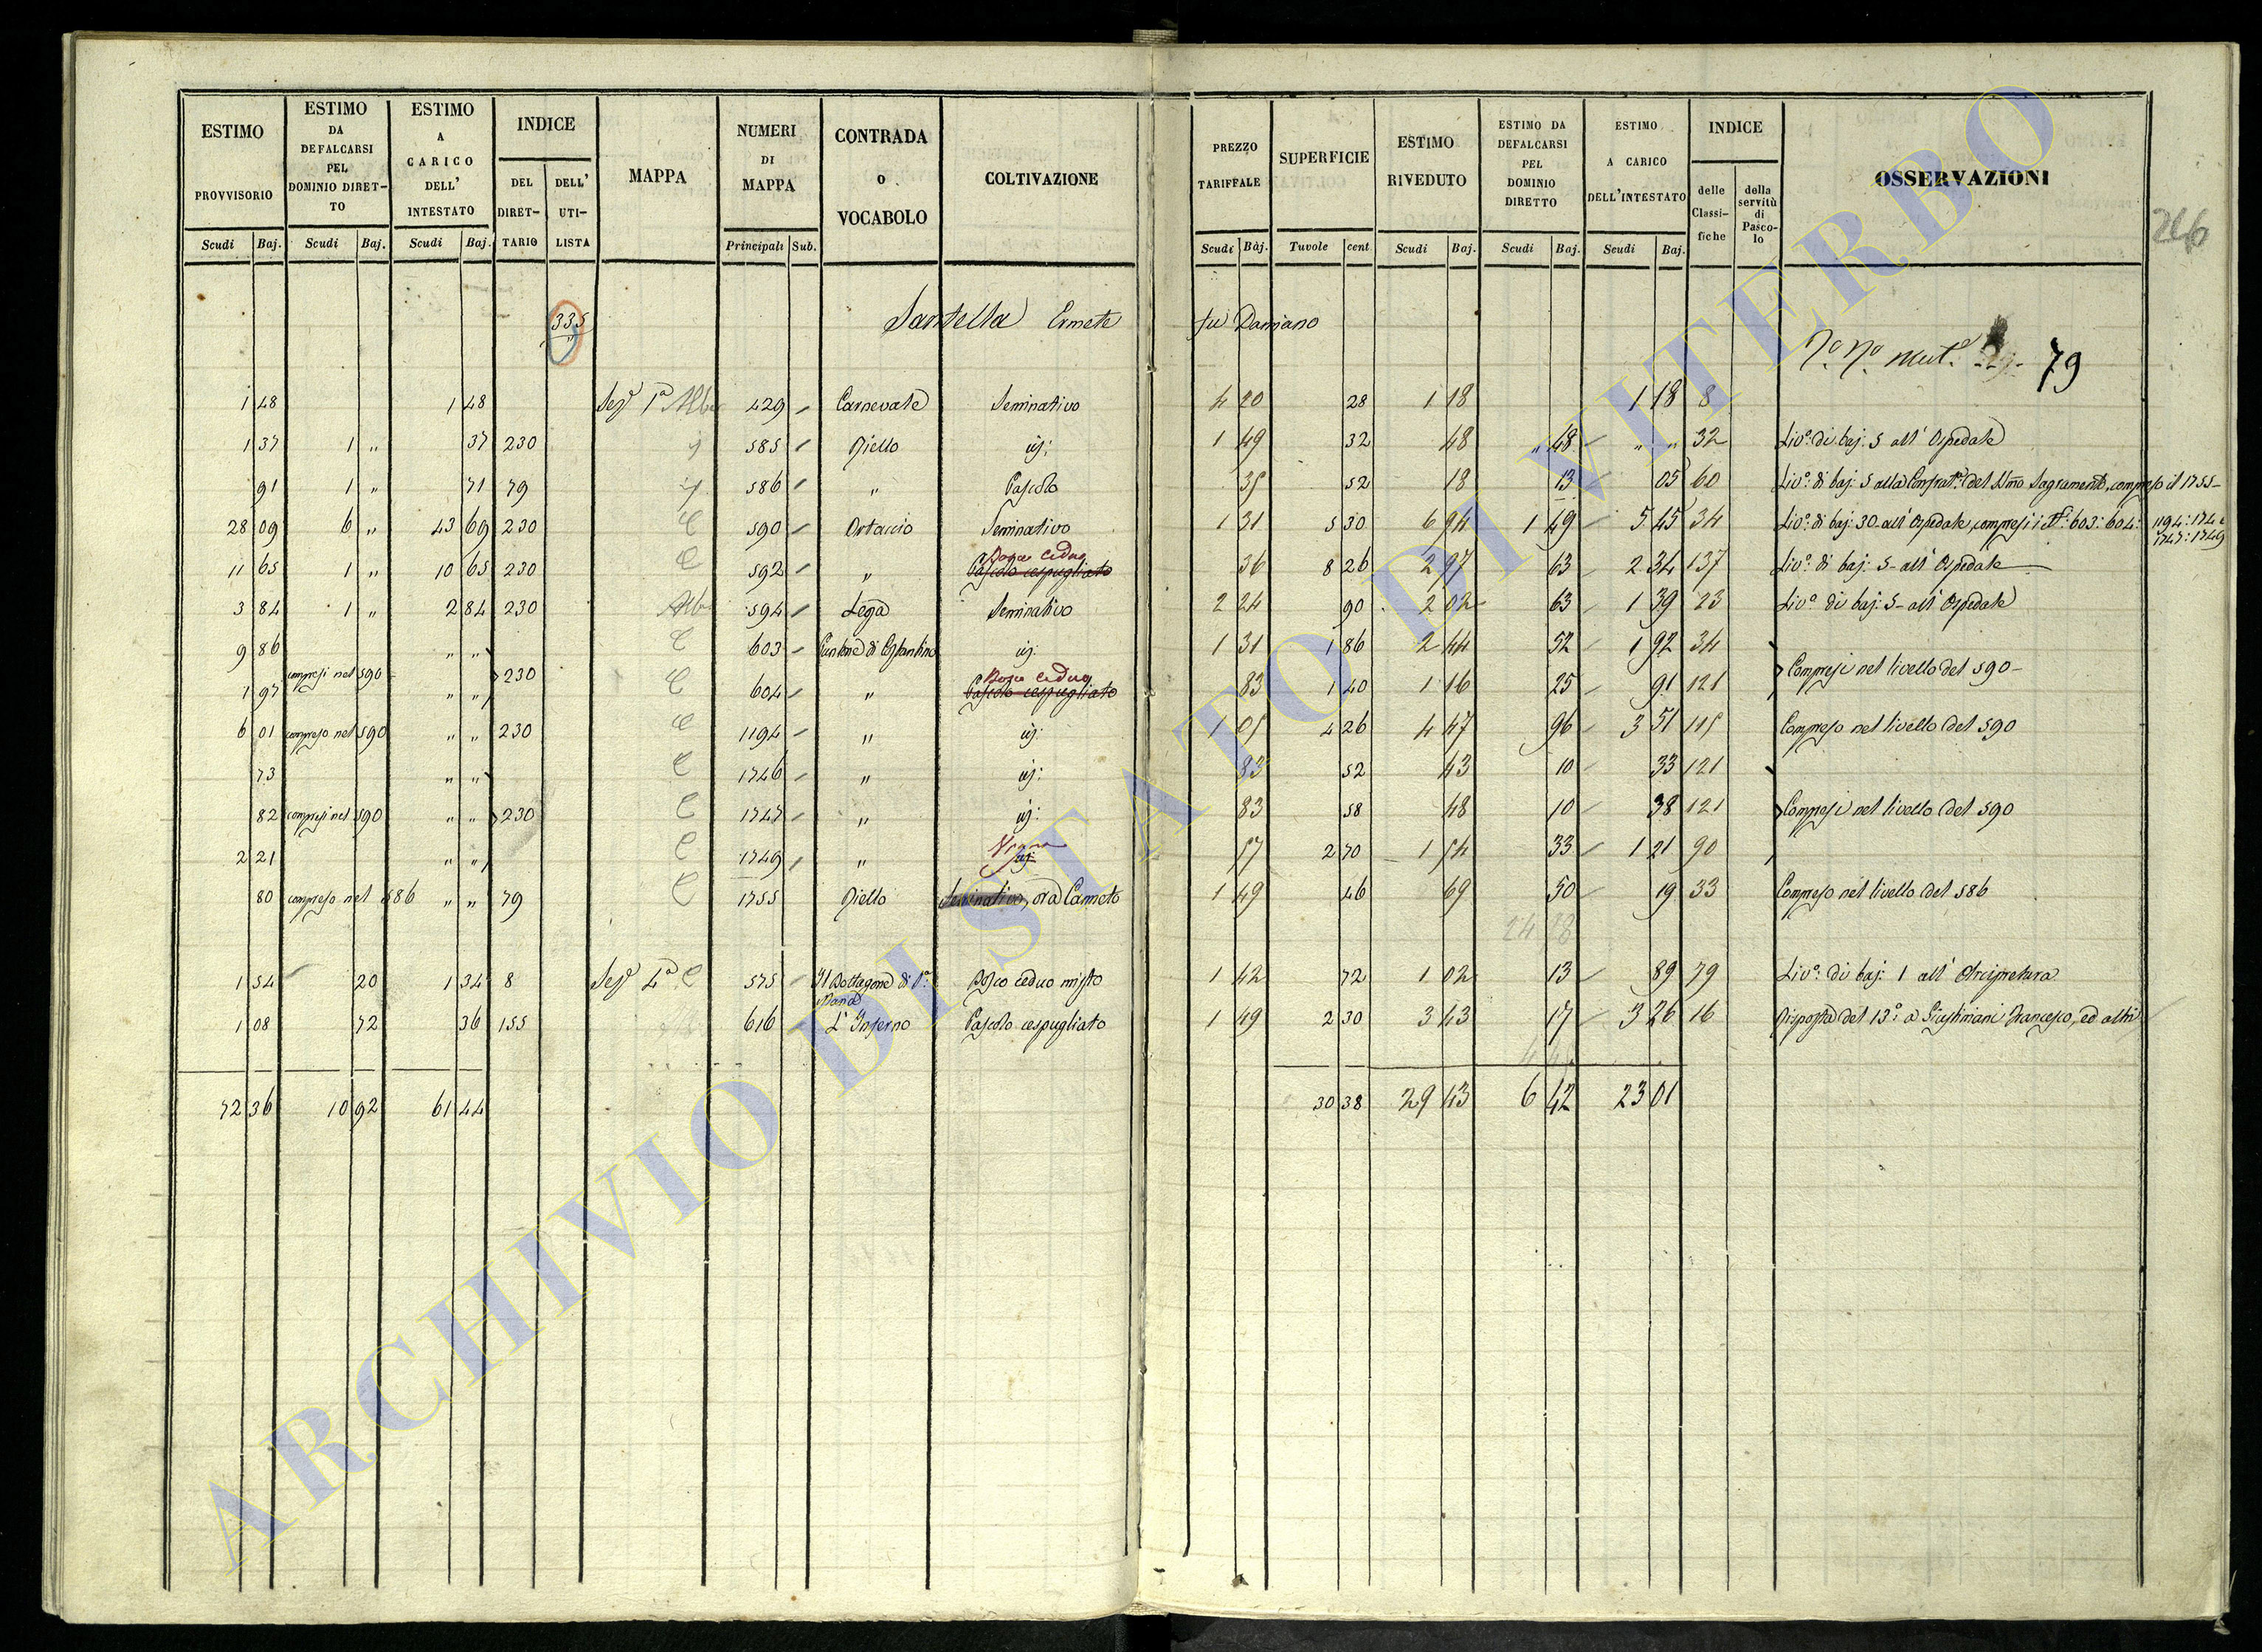 ESTIMO PROVVISORIO Scudi Baj.
ESTIMO DA DEFALCARSI PEL DOMINIO DIRET- TO Scudi Baj.
ESTIMO A CARICO DELL' INTESTATO Scudi Baj.
INDICE DEL DIRET- TARIO DELL' UTI- LISTA
MAPPA
NUMERI DI MAPPA Principali Sub.
CONTRADA O VOCABOLO
COLTIVAZIONE
PREZZO TARIFFALE Scudi Baj.
SUPERFICIE Tavole cent
ESTIMO RIVEDUTO Scudi Baj.
ESTIMO DA DEFALCARSI PEL DOMINIO DIRETTO Scudi Baj.
ESTIMO A CARICO DELL'INTESTATO Scudi Baj.
INDICE delle Classi- fiche della servitù di Pasco- lo
OSSERVAZIONI
246
335 Santella Ermete fu Damiano
79
1 48 1 48 Sez.e 1a 429 Carnevale Seminativo 4 20 28 1 18 1 18 8
1 37 1 " 37 230 585 Piello id: 1 49 32 48 " 48 " " 32 Liv.o di baj: 5 all' Ospedale
91 1 " 71 79 586 " Pascolo 35 52 18 13 05 60 Liv.o di baj: 5 alla Confrat.a del SSmo Sagramento, compreso il 1755
28 09 6 " 43 69 230 C 590 Ortaccio Seminativo 1 31 5 30 6 94 1 49 5 45 34 Liv.o di baj: 30 all' Ospedale, compresi i N.i: 603: 604: 1194: 1746 1747: 1749
11 65 1 " 10 65 230 C 592 " Bosco Ceduo Pascolo cespugliato 36 8 26 2 97 63 2 34 137 Liv.o di baj: 5 all' Ospedale
3 84 1 " 2 84 230 594 Lega Seminativo 2 24 90 2 02 63 1 39 23 Liv.o di baj: 5 all' Ospedale
9 86 " " C 603 Cantone di Costantino id: 1 31 1 86 2 44 52 1 92 34
compresi nel 590 230 Compresi nel livello del 590
1 97 " " C 604 " Bosco Ceduo Pascolo cespugliato 83 1 40 1 16 25 91 121
6 01 compreso nel 590 " " 230 C 1194 " id: 1 05 4 26 4 47 96 3 51 115 Compreso nel livello del 590
73 " " C 1746 " id: 83 52 43 10 33 121
82 compresi nel 590 " " 230 C 1747 " id: 83 58 48 10 38 121 Compresi nel livello del 590
2 21 " " C 1749 " Vigna id: 57 2 70 1 54 33 1 21 90
80 compreso nel 586 " " 79 C 1755 Piello Seminativo, ora Canneto 1 49 46 69 50 19 33 Compreso nel livello del 586
1 54 20 1 34 8 Sez.e 4a C 575 Il Bottagone di S.a Maria Bosco ceduo misto 1 42 72 1 02 13 89 79 Liv.o di baj: 1 all' Arcipretura
1 08 72 36 155 616 L' Inferno Pascolo cespugliato 1 49 2 30 3 43 17 3 26 16 Risposta del 13.o a Giustiniani Francesco, ed altri
72 36 10 92 61 44 30 38 29 43 6 42 23 01
ARCHIVIO DI STATO DI VITERBO